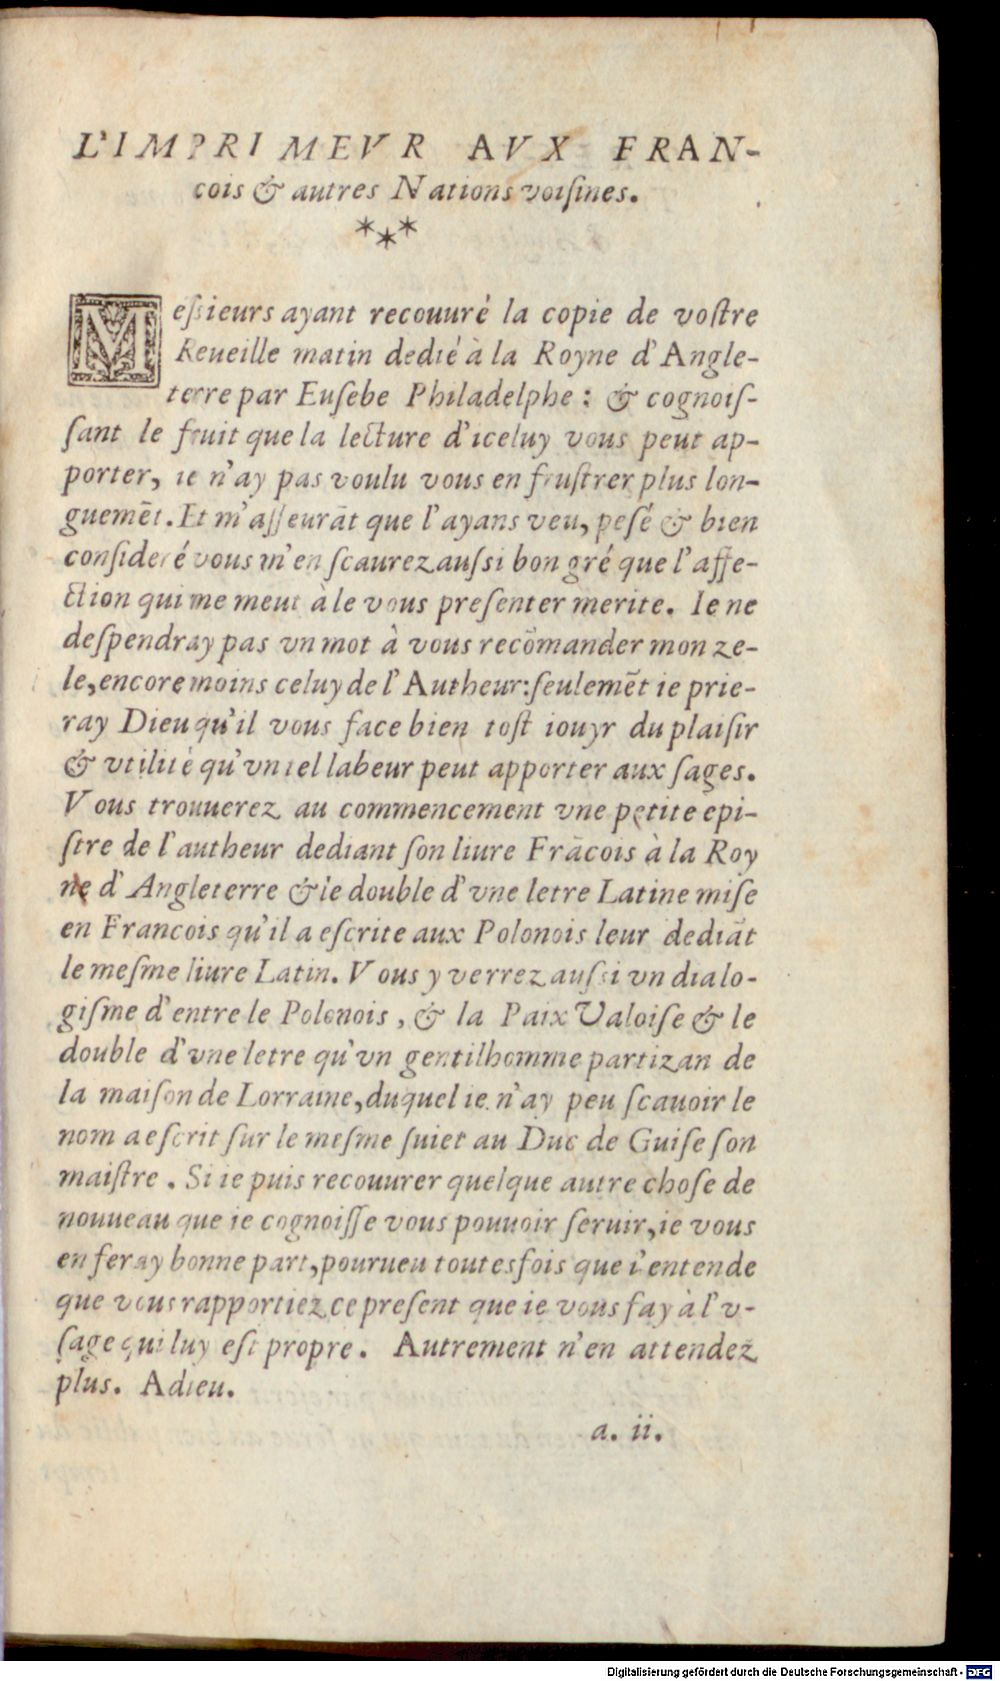 L'IMPRIMEVR AVX FRAN-
cois & autres Nations voisines.
***
Meſsieurs ayant recouuré la copie de voſtre
Reueille matin dedié à la Royne d'Angle-
terre par Euſebe Philadelphe : & cognoiſ-
ſant le fruit que la lecture d'iceluy vous peut ap-
porter, ie n'ay pas voulu vous en fruſtrer plus lon-
guemēt. Et m'aſſeurāt que l'ayans veu, peſé & bien
conſideré vous m'en ſcaurez auſsi bon gré que l'affe-
ction qui me meut à le vous preſenter merite. Ie ne
deſpendray pas vn mot à vous recōmander mon ze-
le, encore moins celuy de l'Autheur: ſeulemēt ie prie-
ray Dieu qu'il vous face bien toſt iouyr du plaiſir
& vtilité qu'vn tel labeur peut apporter aux ſages.
Vous trouuerez au commencement vne petite epi-
ſtre de l'autheur dediant ſon liure Frācois à la Roy
ne d'Angleterre & le double d'vne letre Latine miſe
en Francois qu'il a eſcrite aux Polonois leur dediāt
le meſme liure Latin. Vous y verrez auſsi vn dialo-
giſme d'entre le Polonois, & la Paix Valoiſe & le
double d'vne letre qu'vn gentilhomme partizan de
la maiſon de Lorraine, duquel ie n'ay peu ſcauoir le
nom a eſcrit ſur le meſme ſuiet au Duc de Guiſe ſon
maiſtre. Si ie puis recouurer quelque autre choſe de
nouueau que ie cognoiſſe vous pouuoir ſeruir, ie vous
en feray bonne part, pourueu toutesfois que i'entende
que vous rapportiez ce preſent que ie vous fay à l'v-
ſage qui luy eſt propre. Autrement n'en attendez
plus. Adieu.
a. ii.
Digitalisierung gefördert durch die Deutsche Forschungsgemeinschaft - DFG